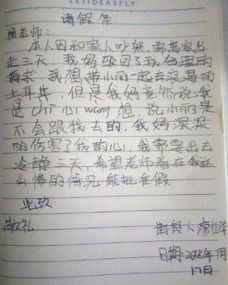 LETIDEASFLY
请假条
老师:
本人因和家人吵架,需离家出
走三天,我妈驳回了我合理的
需求,我想带小丽一起去浪漫的
土耳其,但是我妈竟然说我
是chi心wang想,说小丽是
不会跟我去的,我妈深深
的伤害了我的心,我需要出去
冷静三天,希望老师看在我这
么惨的情况能批准假
此致
敬礼
请假人
日期:2018年 月
17日